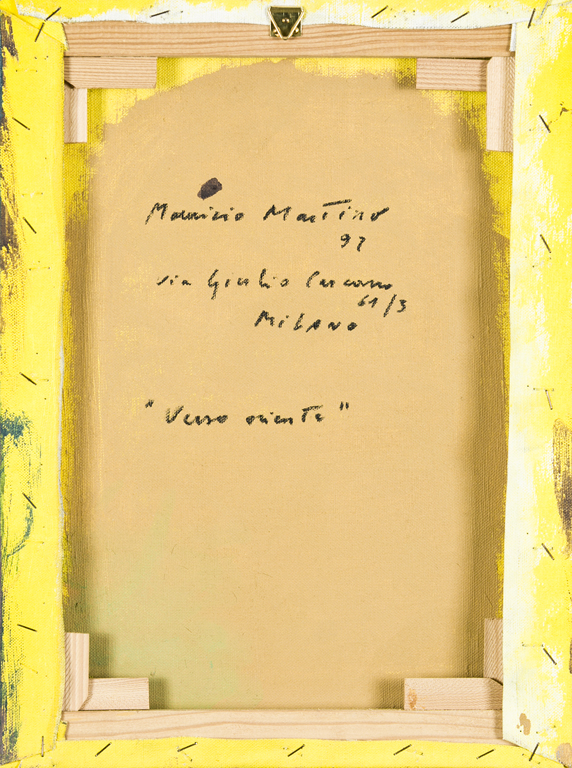 Maurizio Martino
97
via Giulio Carcano
61/3
Milano
"Verso oriente"